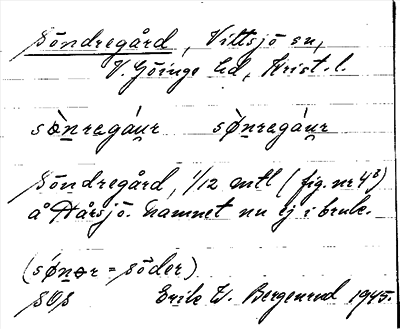 Söndregård, Vittsjö sn,
V. Göinge hd, Krist. l.
sø̀nregáu̯r sø̀nregáu̯r
Söndregård, 1/12 mtl (fig. nr 4⁸)
å Hårsjö. Namnet nu ej i bruk.
(sǿnər = söder)
Erik W. Bergenrud 1945.